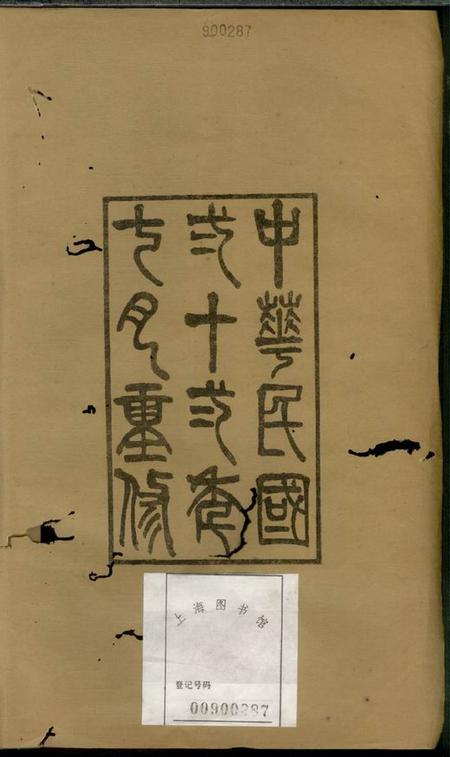 900287
中華民國
弍十弍年
七月重修
上海图书馆
登记号码
00900287